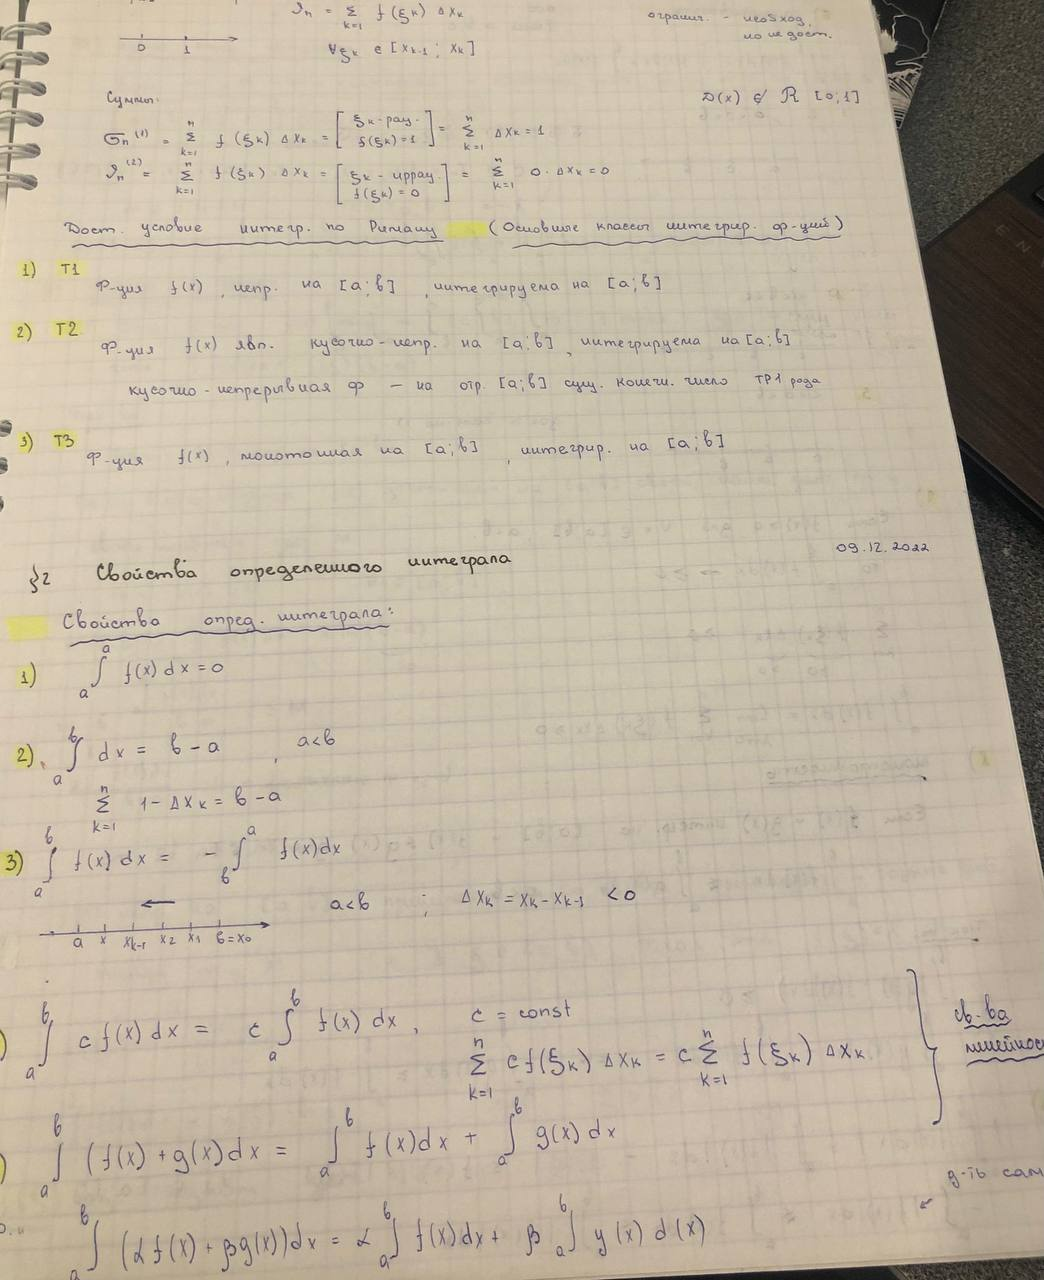 𝒥n = Σ k=1 f(ξk) Δxk
огранич. - необход,
но не дост.
0 1
∀ξk ∈ [xk-1; xk]
Суммы:
D(x) ∉ R [0;1]
σn⁽¹⁾ = Σ k=1 n f(ξk) Δxk = [ξk - рац. f(ξk)=1] = Σ k=1 n Δxk = 1
𝒥n⁽²⁾ = Σ k=1 n f(ξk) Δxk = [ξk - иррац. f(ξk)=0] = Σ k=1 n 0·Δxk = 0
Дост. условие интегр. по Риману (Основные классы интегрир. ф-ций)
1) Т1
Ф-ция f(x), непр. на [a;b], интегрируема на [a;b]
2) Т2
Ф-ция f(x) явл. кусочно-непр. на [a;b], интегрируема на [a;b]
кусочно-непрерывная ф — на отр. [a;b] сущ. конечн. число ТР1 рода
3) Т3
Ф-ция f(x), монотонная на [a;b], интегрир. на [a;b]
09.12.2022
§2 Свойства определенного интеграла
Свойства опред. интеграла:
1) ∫ₐᵃ f(x) dx = 0
2) ∫ₐᵇ dx = b - a, a<b
Σ k=1 n 1 - Δxk = b - a
3) ∫ₐᵇ f(x) dx = - ∫ b a f(x)dx
← a<b ; Δxk = xk - xk-1 < 0
a x xk-1 x2 x1 b=x0
) ∫ₐᵇ c f(x) dx = c ∫ₐᵇ f(x) dx, c = const
Σ k=1 n c f(ξk) Δxk = c Σ k=1 n f(ξk) Δxk
св-ва
линейнос
) ∫ₐᵇ (f(x) + g(x) dx = ∫ₐᵇ f(x)dx + ∫ₐᵇ g(x) dx
д-ть сам
∫ₐᵇ (αf(x) + βg(x))dx = α ∫ₐᵇ f(x)dx + β ∫ₐᵇ y(x) d(x)